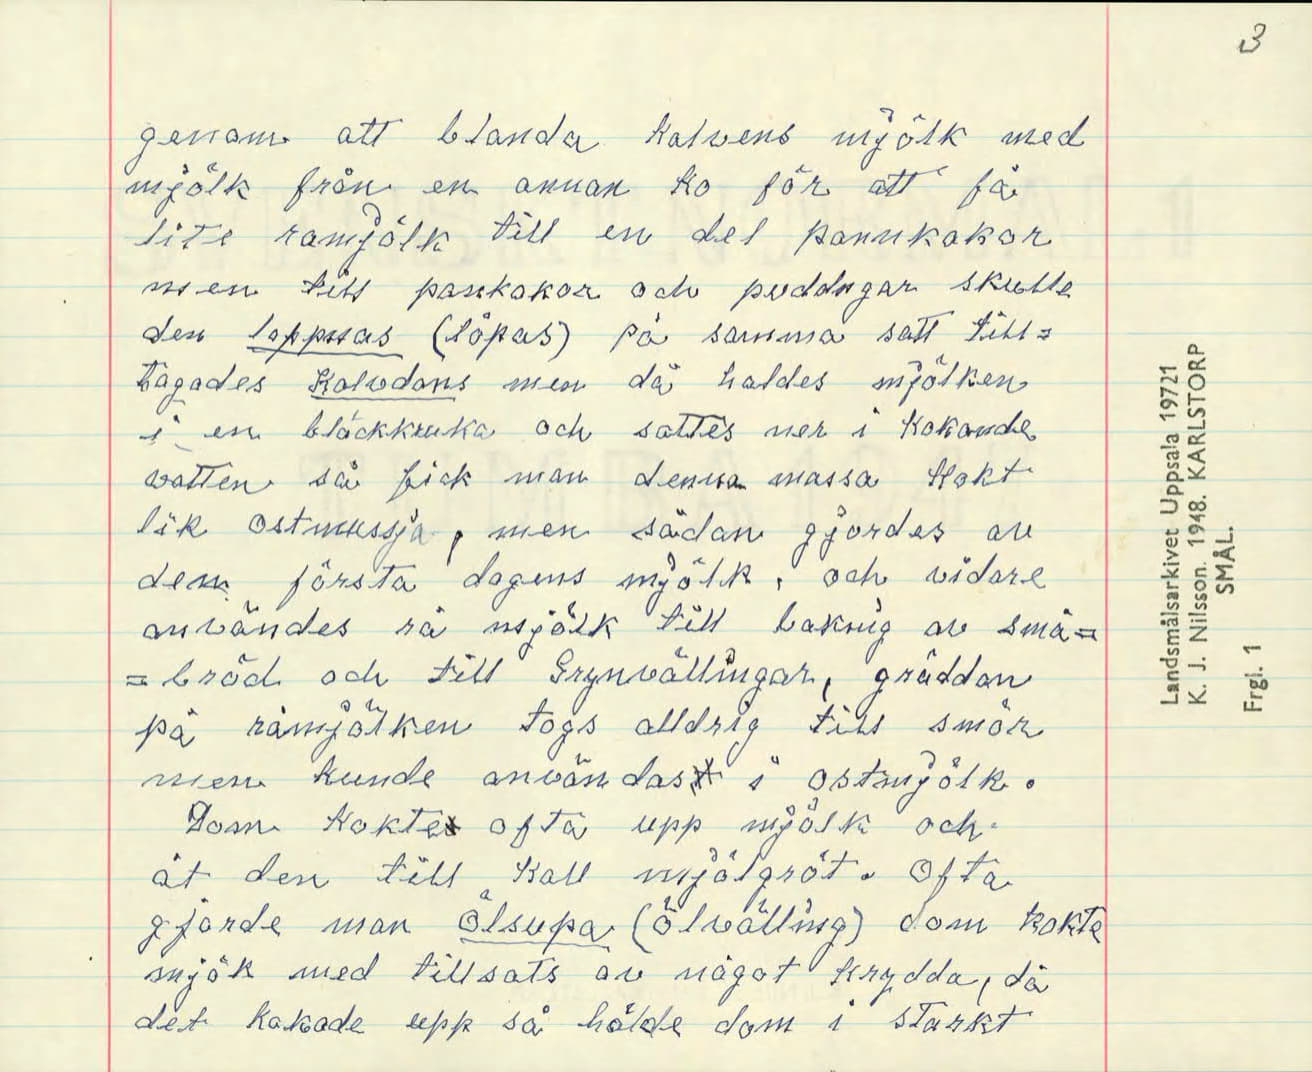 3
genom att blanda kalvens mjölk med
mjölk från en annan ko för att få
lite ramjölk till en del pannkakor
men till pankakor och puddngar skulle
den loppnas (löpas) på samma satt till=
tagades Kalvdans men då haldes mjölken
i en bläckkruka och sattes ner i kokande
vatten så fick man denna massa kokt
lik ostmussja, men sådan gjordes av
dem första dagens mjölk, och vidare
användes rå mjölk till baknig av små=
=bröd och till Grynvällingar, gräddan
på råmjölken togs alldrig till smör
men kunde användas i ostmjölk.
Dom kokte ofta upp mjölk och
åt den till kall mjölgröt. Ofta
gjorde man Ölsupa (ölvälling) dom kokte
mjök med tillsats av något krydda, då
det kokade upp så hälde dom i starkt
Landsmålsarkivet Uppsala 19721
K. J. Nilsson. 1948. KARLSTORP
SMÅL.
Frgl. 1